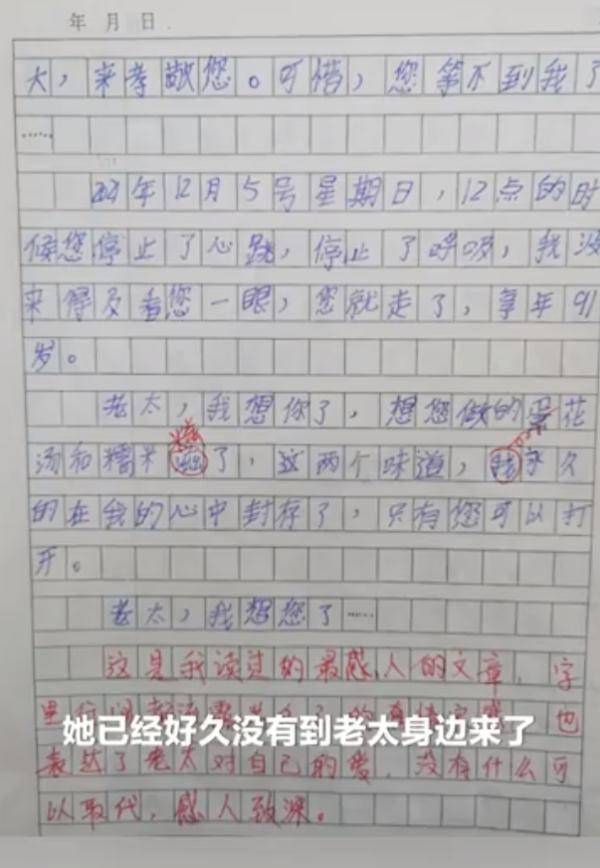 年 月 日
大，来孝敬您。可惜，您等不到我了
……
2021年12月5号星期日，12点的时
候您停止了心跳，停止了呼吸，我没
来得及看您一眼，您就走了，享年91
岁。
老太，我想你了，想您做的蛋花
汤和糯米了，这两个味道，永久
的在我的心中封存了，只有您可以打
开。
老太，我想您了……
这是我读过的最感人的文章，字
里行间 也
她已经好久没有到老太身边来了
表达了老太对自己的爱，没有什么可
以取代，感人致深。